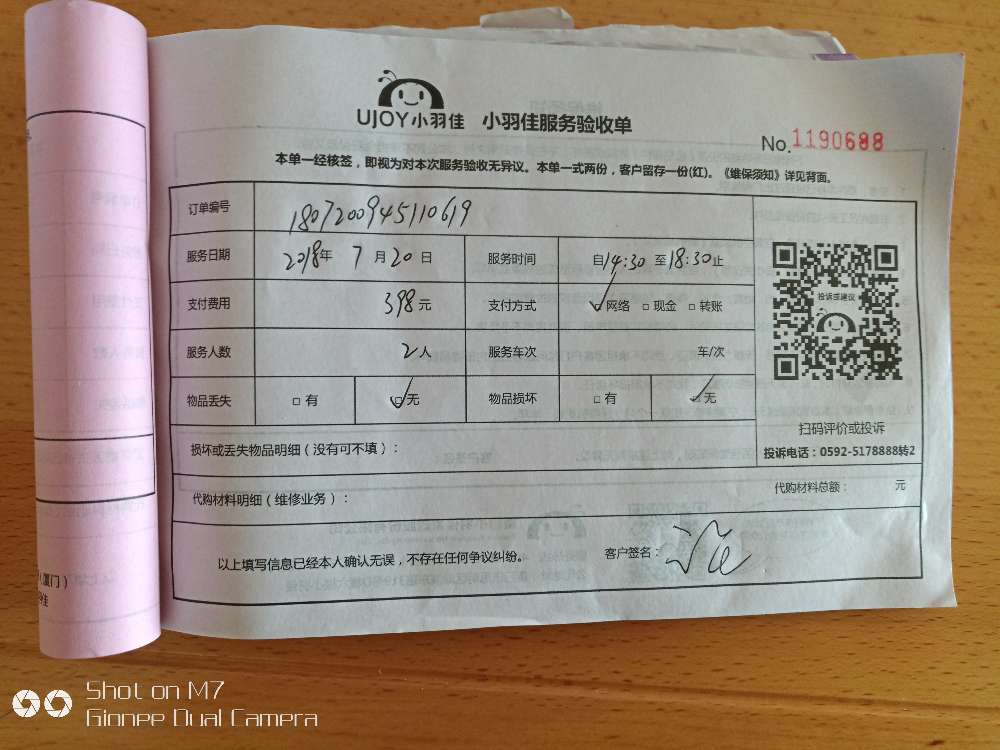 UJOY小羽佳 小羽佳服务验收单
No.1190688
本单一经核签，即视为对本次服务验收无异议。本单一式两份，客户留存一份(红)。《维保须知》详见背面。
订单编号 1807200945110619
服务日期 2018年 7月20日 服务时间 自14:30至18:30止
支付费用 398元 支付方式 ☑网络 □现金 □转账
服务人数 2人 服务车次 车/次
物品丢失 □有 ☑无 物品损坏 □有 ☑无
投诉或建议
扫码评价或投诉
投诉电话：0592-5178888转2
损坏或丢失物品明细（没有可不填）：
代购材料明细（维修业务）： 代购材料总额： 元
以上填写信息已经本人确认无误，不存在任何争议纠纷。 客户签名：
Shot on M7
Gionee Dual Camera